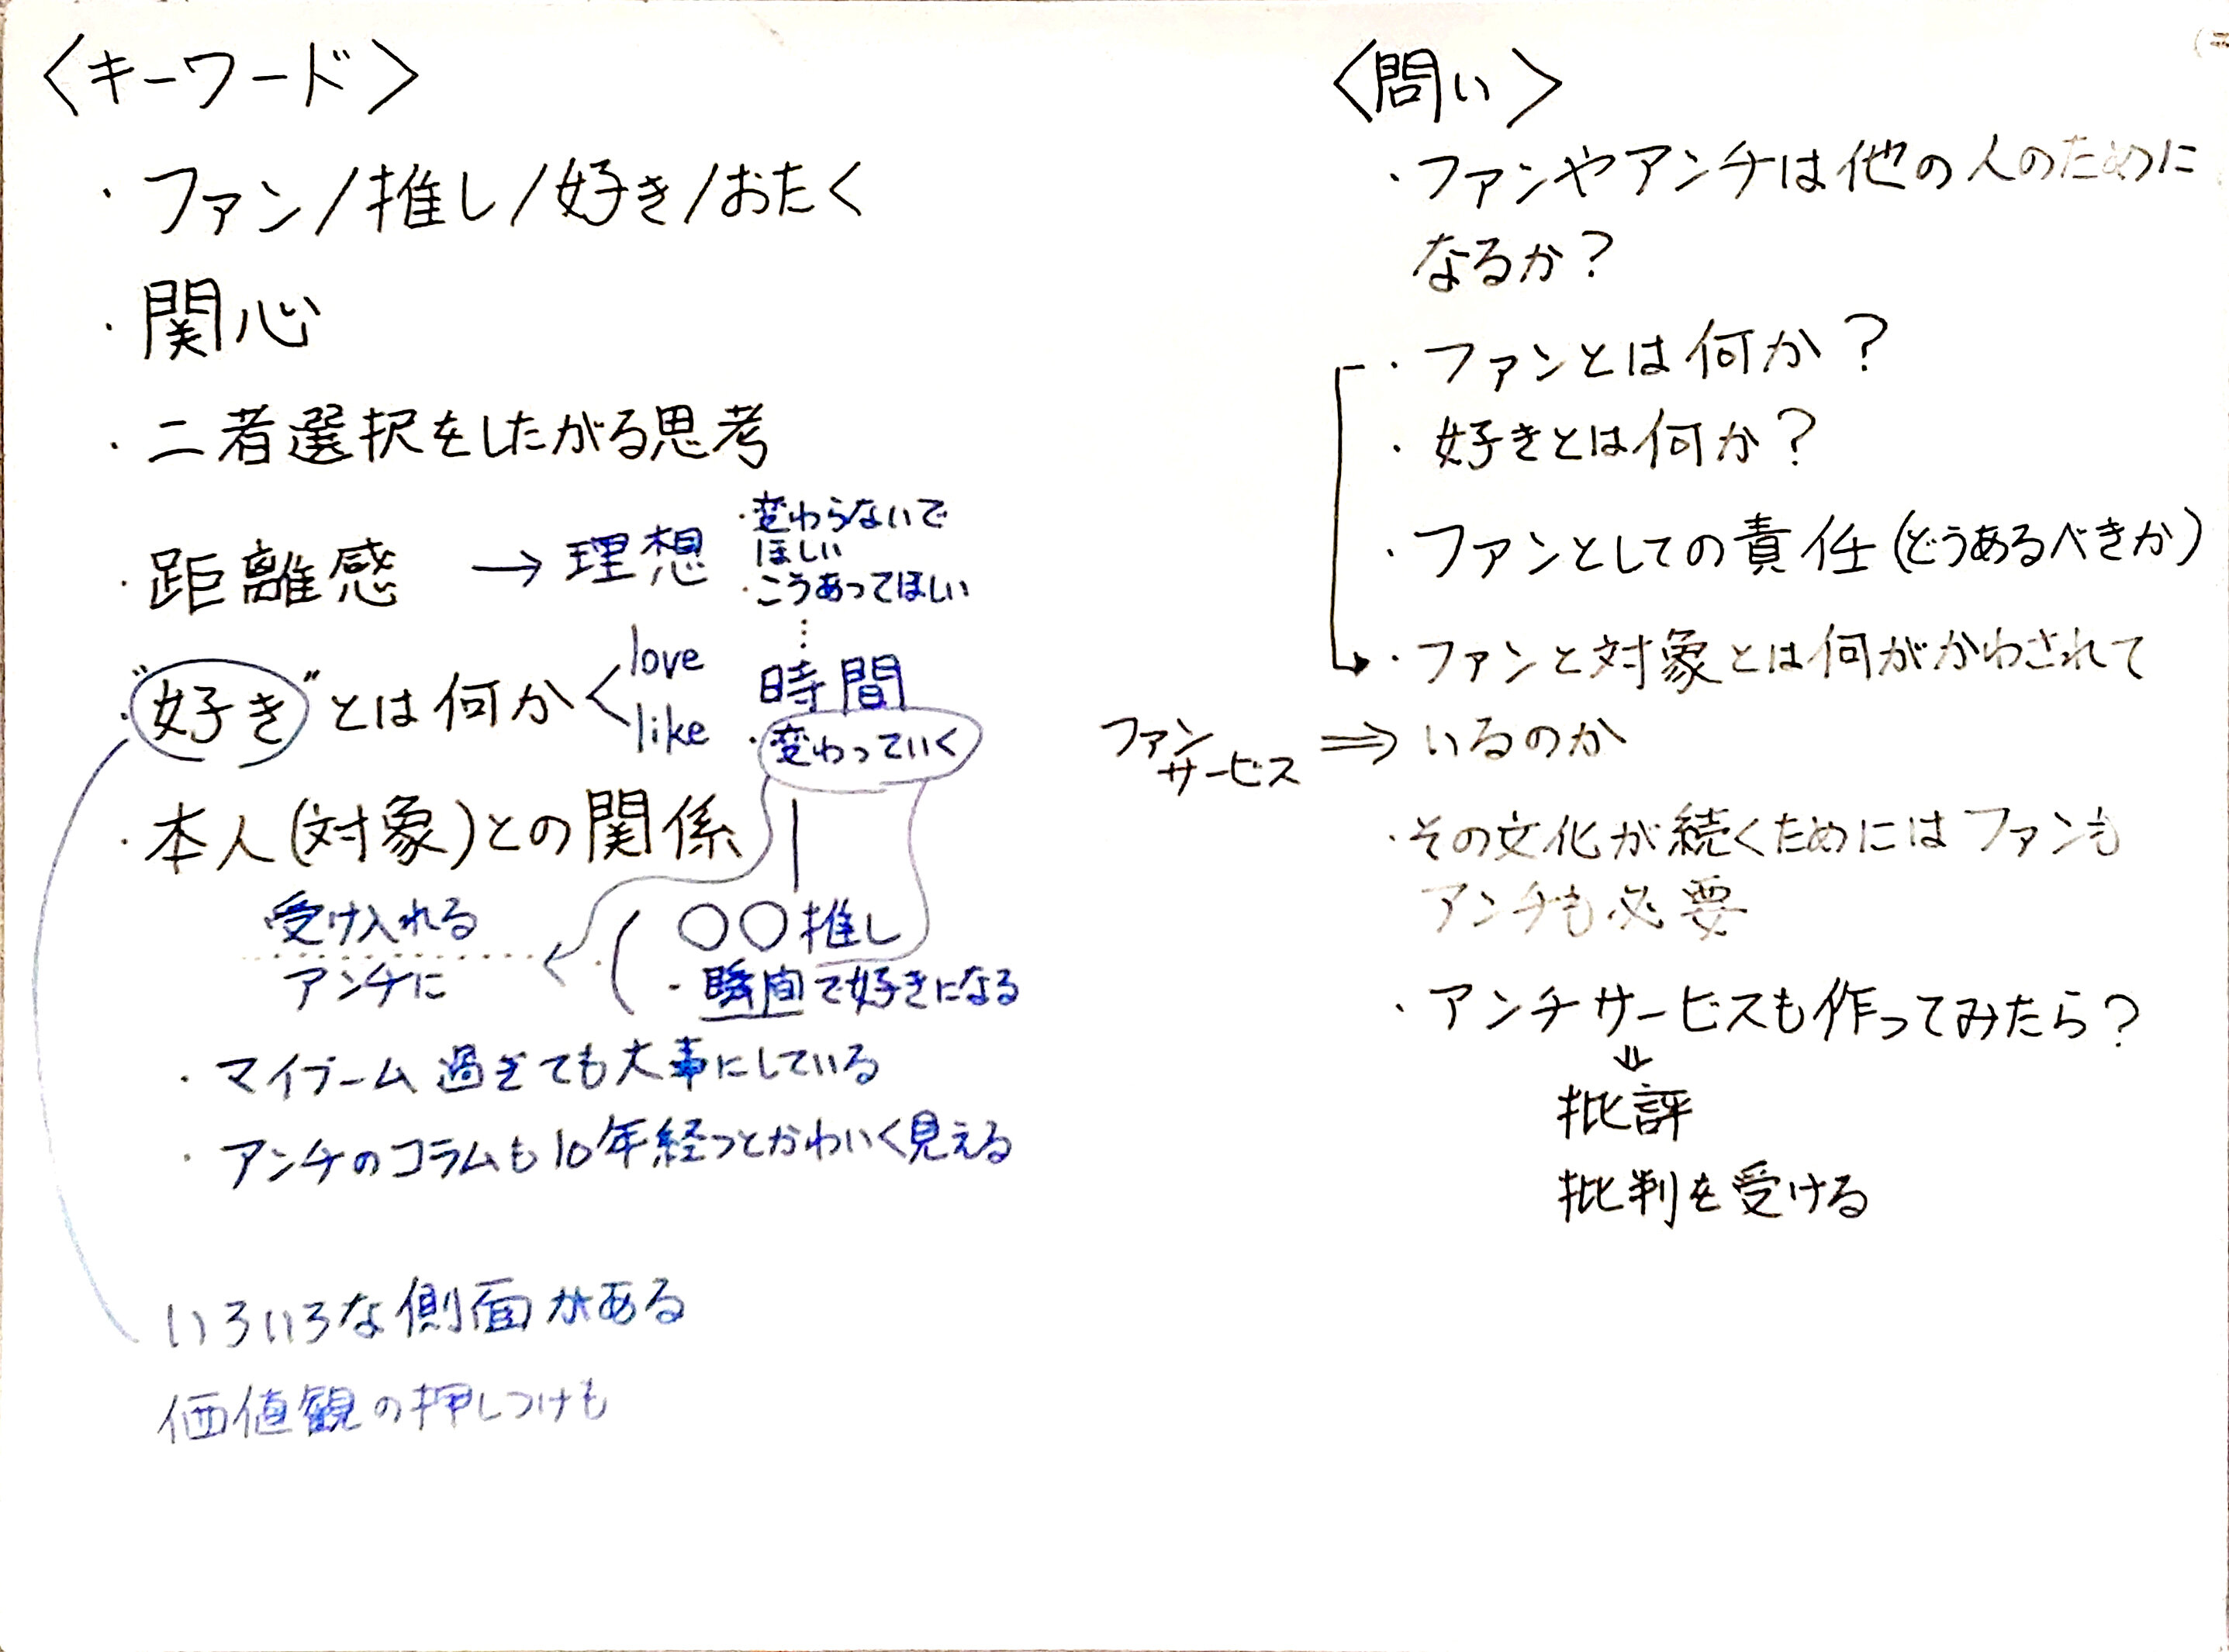 〈キーワード〉
・ファン/推し/好き/おたく
・関心
・二者選択をしたがる思考
・距離感 → 理想
・変わらないで
ほしい
・こうあってほしい
・"好き"とは何か<
love
like
時間
・変わっていく
・本人(対象)との関係
受け入れる
アンチに
○○推し
・瞬間で好きになる
・マイブーム過ぎても大事にしている
・アンチのコラムも10年経つとかわいく見える
いろいろな側面がある
価値観の押しつけも
〈問い〉
・ファンやアンチは他の人のために
なるか?
・ファンとは何か?
・好きとは何か?
・ファンとしての責任(どうあるべきか)
・ファンと対象とは何がかわされて
いるのか
ファン
サービス ⇒
・その文化が続くためにはファンも
アンチも必要
・アンチサービスも作ってみたら?
⇓
批評
批判を受ける